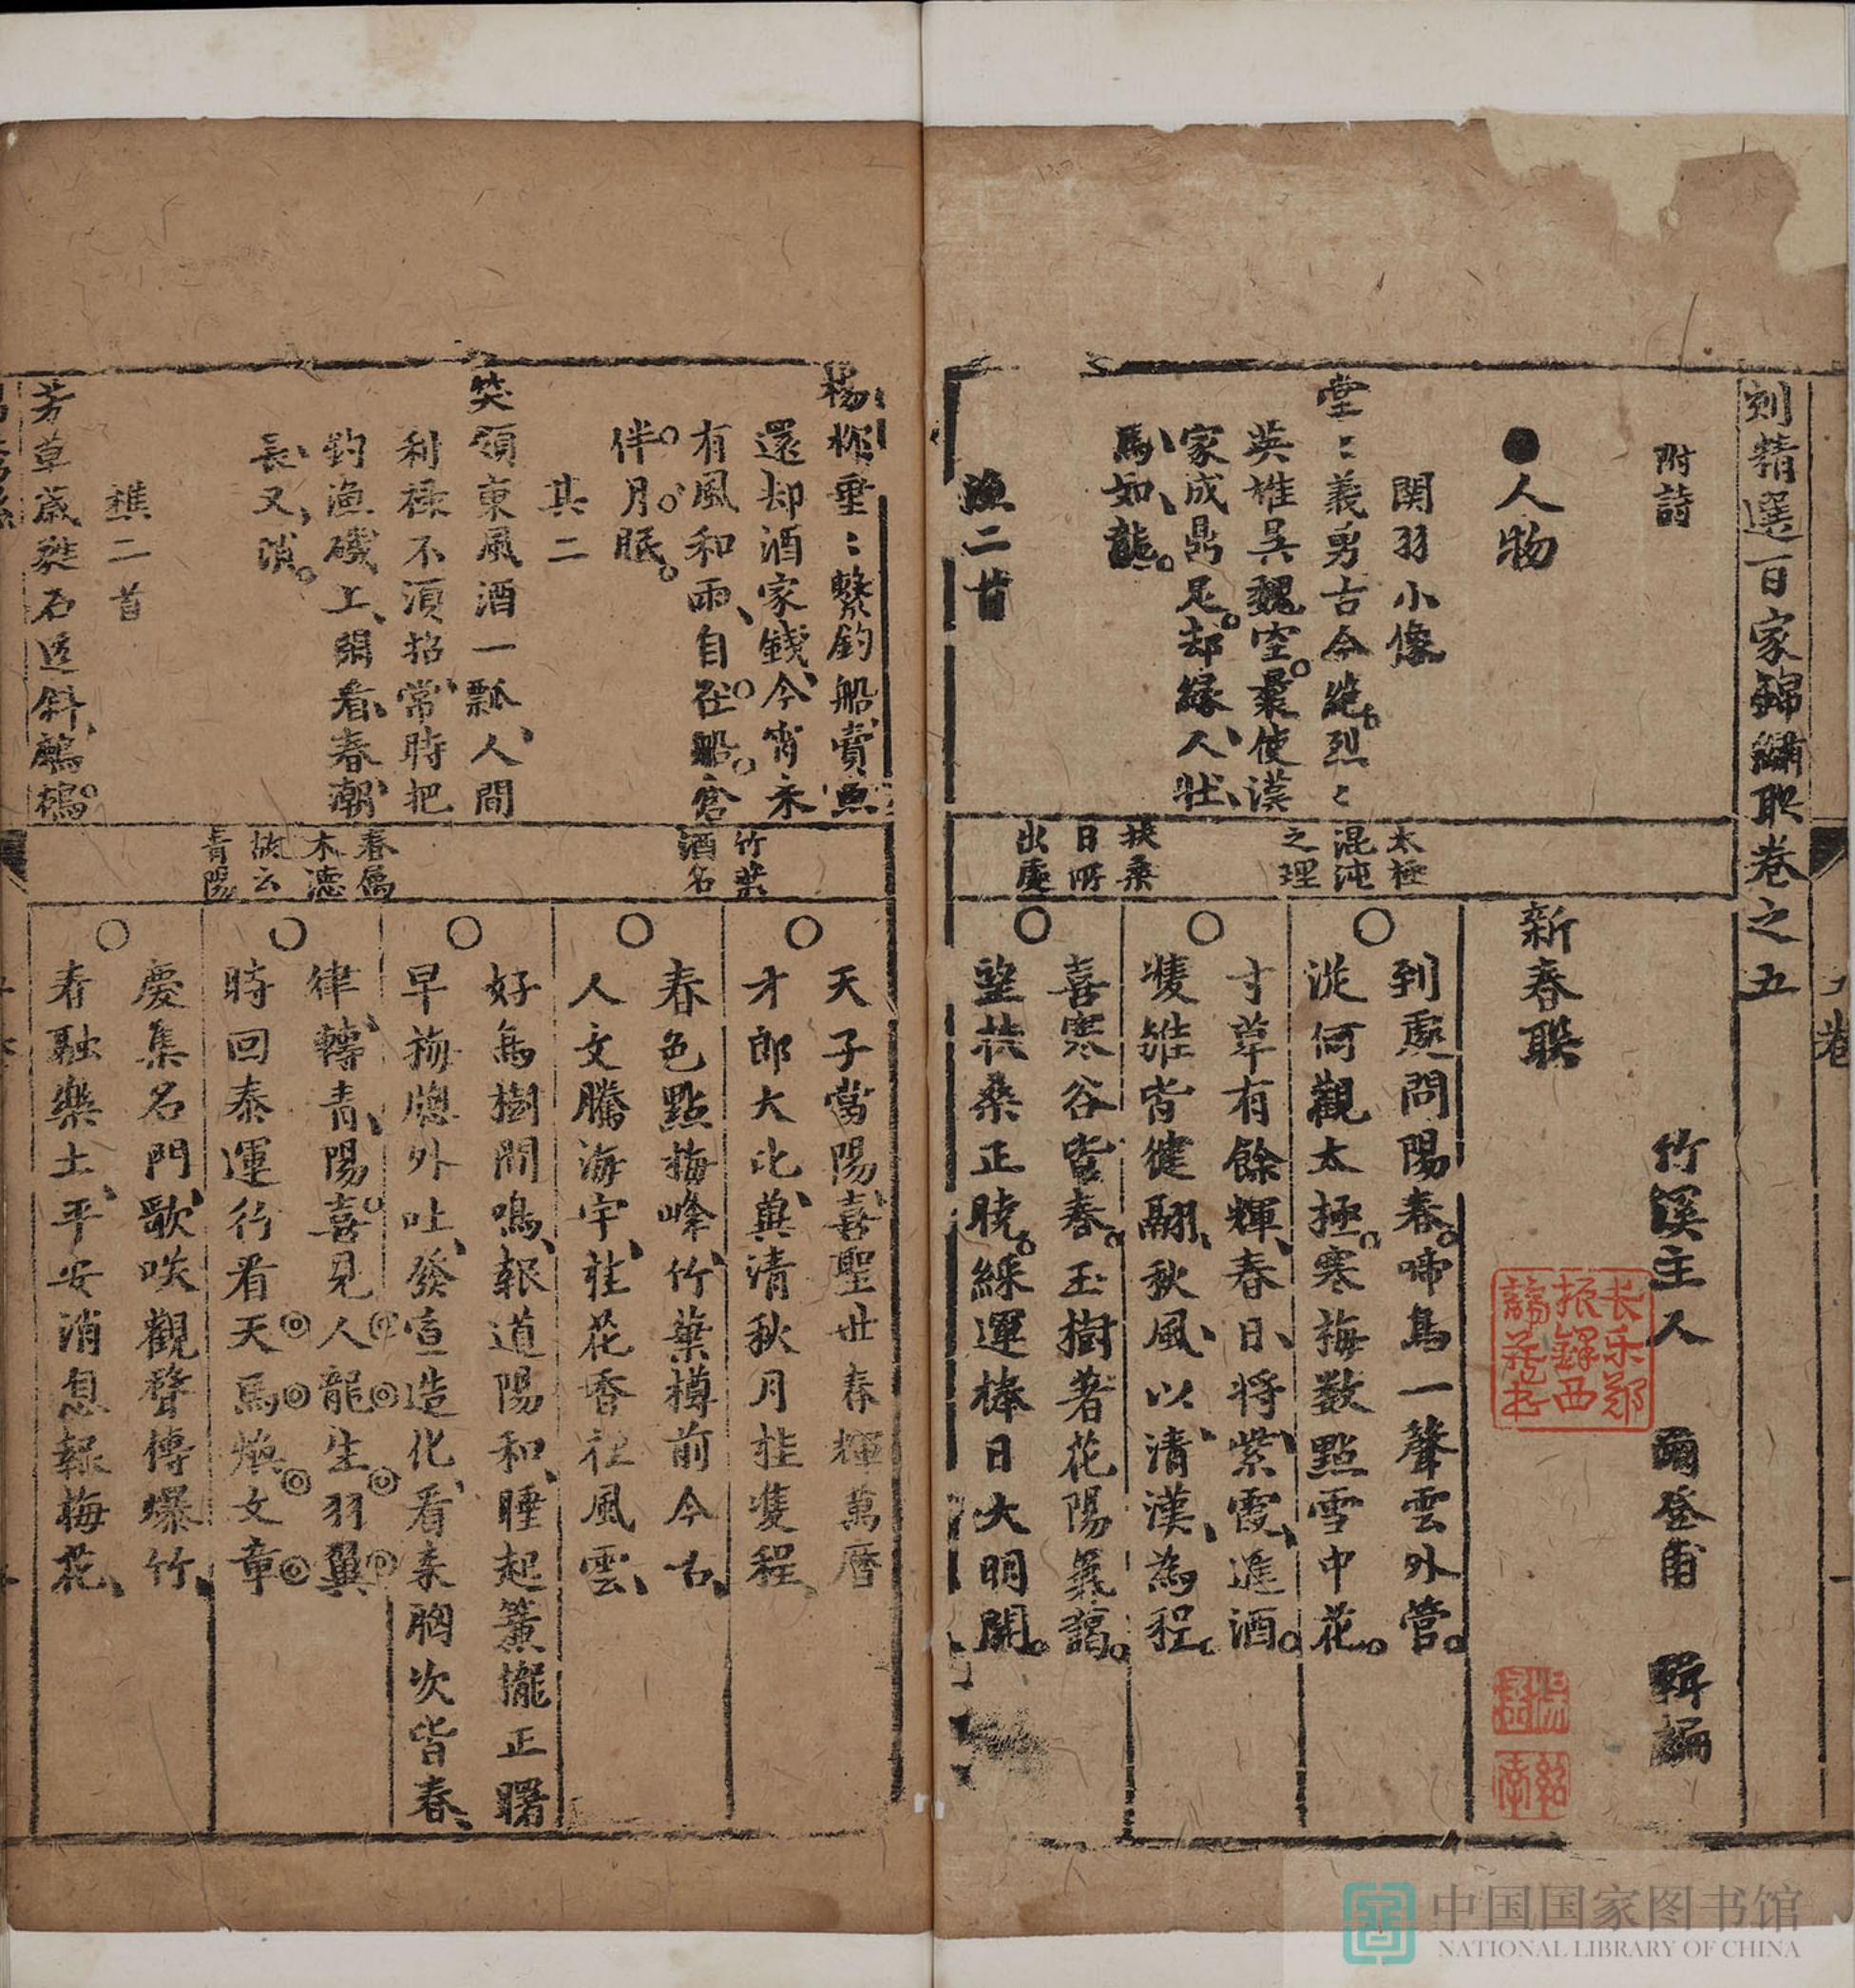 刻精選百家錦繡聮卷之五
附詩
竹溪主人
爾登甫
輯編
●人物
関羽小像
堂〻義勇古今絶烈〻
英雄吴魏空羣使漢
家成鼎足却緣人壮
馬如龍
漁二首
太極
混沌
之理
扶桑
日所
出處
新春聮
到處問陽春啼鳥一聲雲外管
從何觀太極寒梅数點雪中花
寸草有餘輝春日将紫霞進酒
雙雏皆健翮秋風以清漢為程
喜寒谷皆春玉樹著花陽氣藹
望扶桑正曉綵運棒日大明開
长乐郑
振鐸西
諦藏书
五卷
一
楊栁垂〻繫釣船賣魚
還却酒家錢今宵禾
有風和雨自在船窓
伴月眠
其二
笑領東風酒一瓢人間
利祿不湏招常時把
釣漁磯上閑看春潮
長又消
樵二首
芳草巖㟮石逕斜鷓鴣
竹葉
酒名
春属
木德
故云
青陽
天子當陽喜聖世春輝萬曆
才郎大比萬清秋月桂雙程
春色點梅峰竹葉樽前今古
人文騰海宇桂花香裡風雲
好鳥樹間鳴報道陽和睡起簾櫳正曙
早梅牕外吐發宣造化看来胸次皆春
律轉青陽喜見人龍生羽翼
時回泰運行看天馬煥文章
慶集名門歌咲觀聲傳爆竹
春融樂土平安消息報梅花
中国国家图书馆
NATIONAL LIBRARY OF CHINA